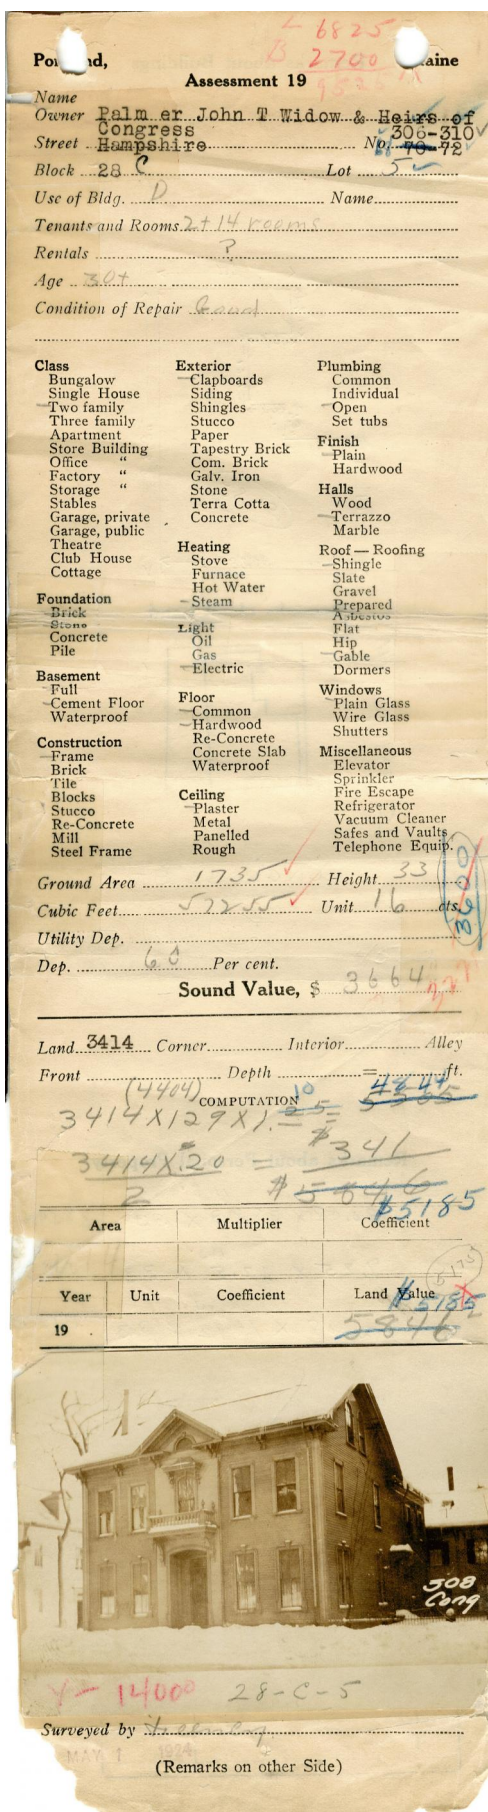 L 6825
B 2700
Assessment 19
Name
Owner Palm er John T Widow & Heirs of
Congress 306-310
Street Hampshire No. 70-72
Block 28 C Lot 5
Use of Bldg. D Name
Tenants and Rooms 2+14 rooms
Rentals ?
Age 30+
Condition of Repair Good
Class
Bungalow
Single House
Two family
Three family
Apartment
Store Building
Office "
Factory "
Storage "
Stables
Garage, private
Garage, public
Theatre
Club House
Cottage
Foundation
Brick
Stone
Concrete
Pile
Basement
Full
Cement Floor
Waterproof
Construction
Frame
Brick
Tile
Blocks
Stucco
Re-Concrete
Mill
Steel Frame
Exterior
Clapboards
Siding
Shingles
Stucco
Paper
Tapestry Brick
Com. Brick
Galv. Iron
Stone
Terra Cotta
Concrete
Heating
Stove
Furnace
Hot Water
Steam
Light
Oil
Gas
Electric
Floor
Common
Hardwood
Re-Concrete
Concrete Slab
Waterproof
Ceiling
Plaster
Metal
Panelled
Rough
Plumbing
Common
Individual
Open
Set tubs
Finish
Plain
Hardwood
Halls
Wood
Terrazzo
Marble
Roof — Roofing
Shingle
Slate
Gravel
Prepared
Asbestos
Flat
Hip
Gable
Dormers
Windows
Plain Glass
Wire Glass
Shutters
Miscellaneous
Elevator
Sprinkler
Fire Escape
Refrigerator
Vacuum Cleaner
Safes and Vaults
Telephone Equip.
3600
Ground Area 1735 Height 33
Cubic Feet 57255 Unit 16 cts.
Utility Dep.
Dep. 60 Per cent.
Sound Value, $ 3664
Land 3414 Corner Interior Alley
Front Depth = ft.
(4404) COMPUTATION 10
3414X129X1.25 = 5505
3414X.20 = $ 341
2 $5846
$5185
Area Multiplier Coefficient
Year Unit Coefficient Land Value
$5185
19 5846
308
Cong
V- 14000 28-C-5
Surveyed by
MAY 1 1924
(Remarks on other Side)